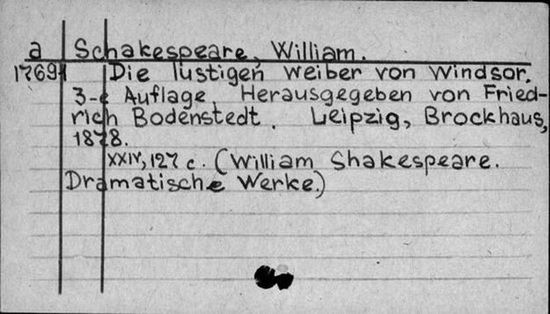 a Schakespeare, William.
17691 Die lustigen Weiber von Windsor.
3-e Auflage. Herausgegeben von Fried-
rich Bodenstedt. Leipzig, Brockhaus,
1878.
XXIV, 127 c. (William Shakespeare.
Dramatische Werke.)